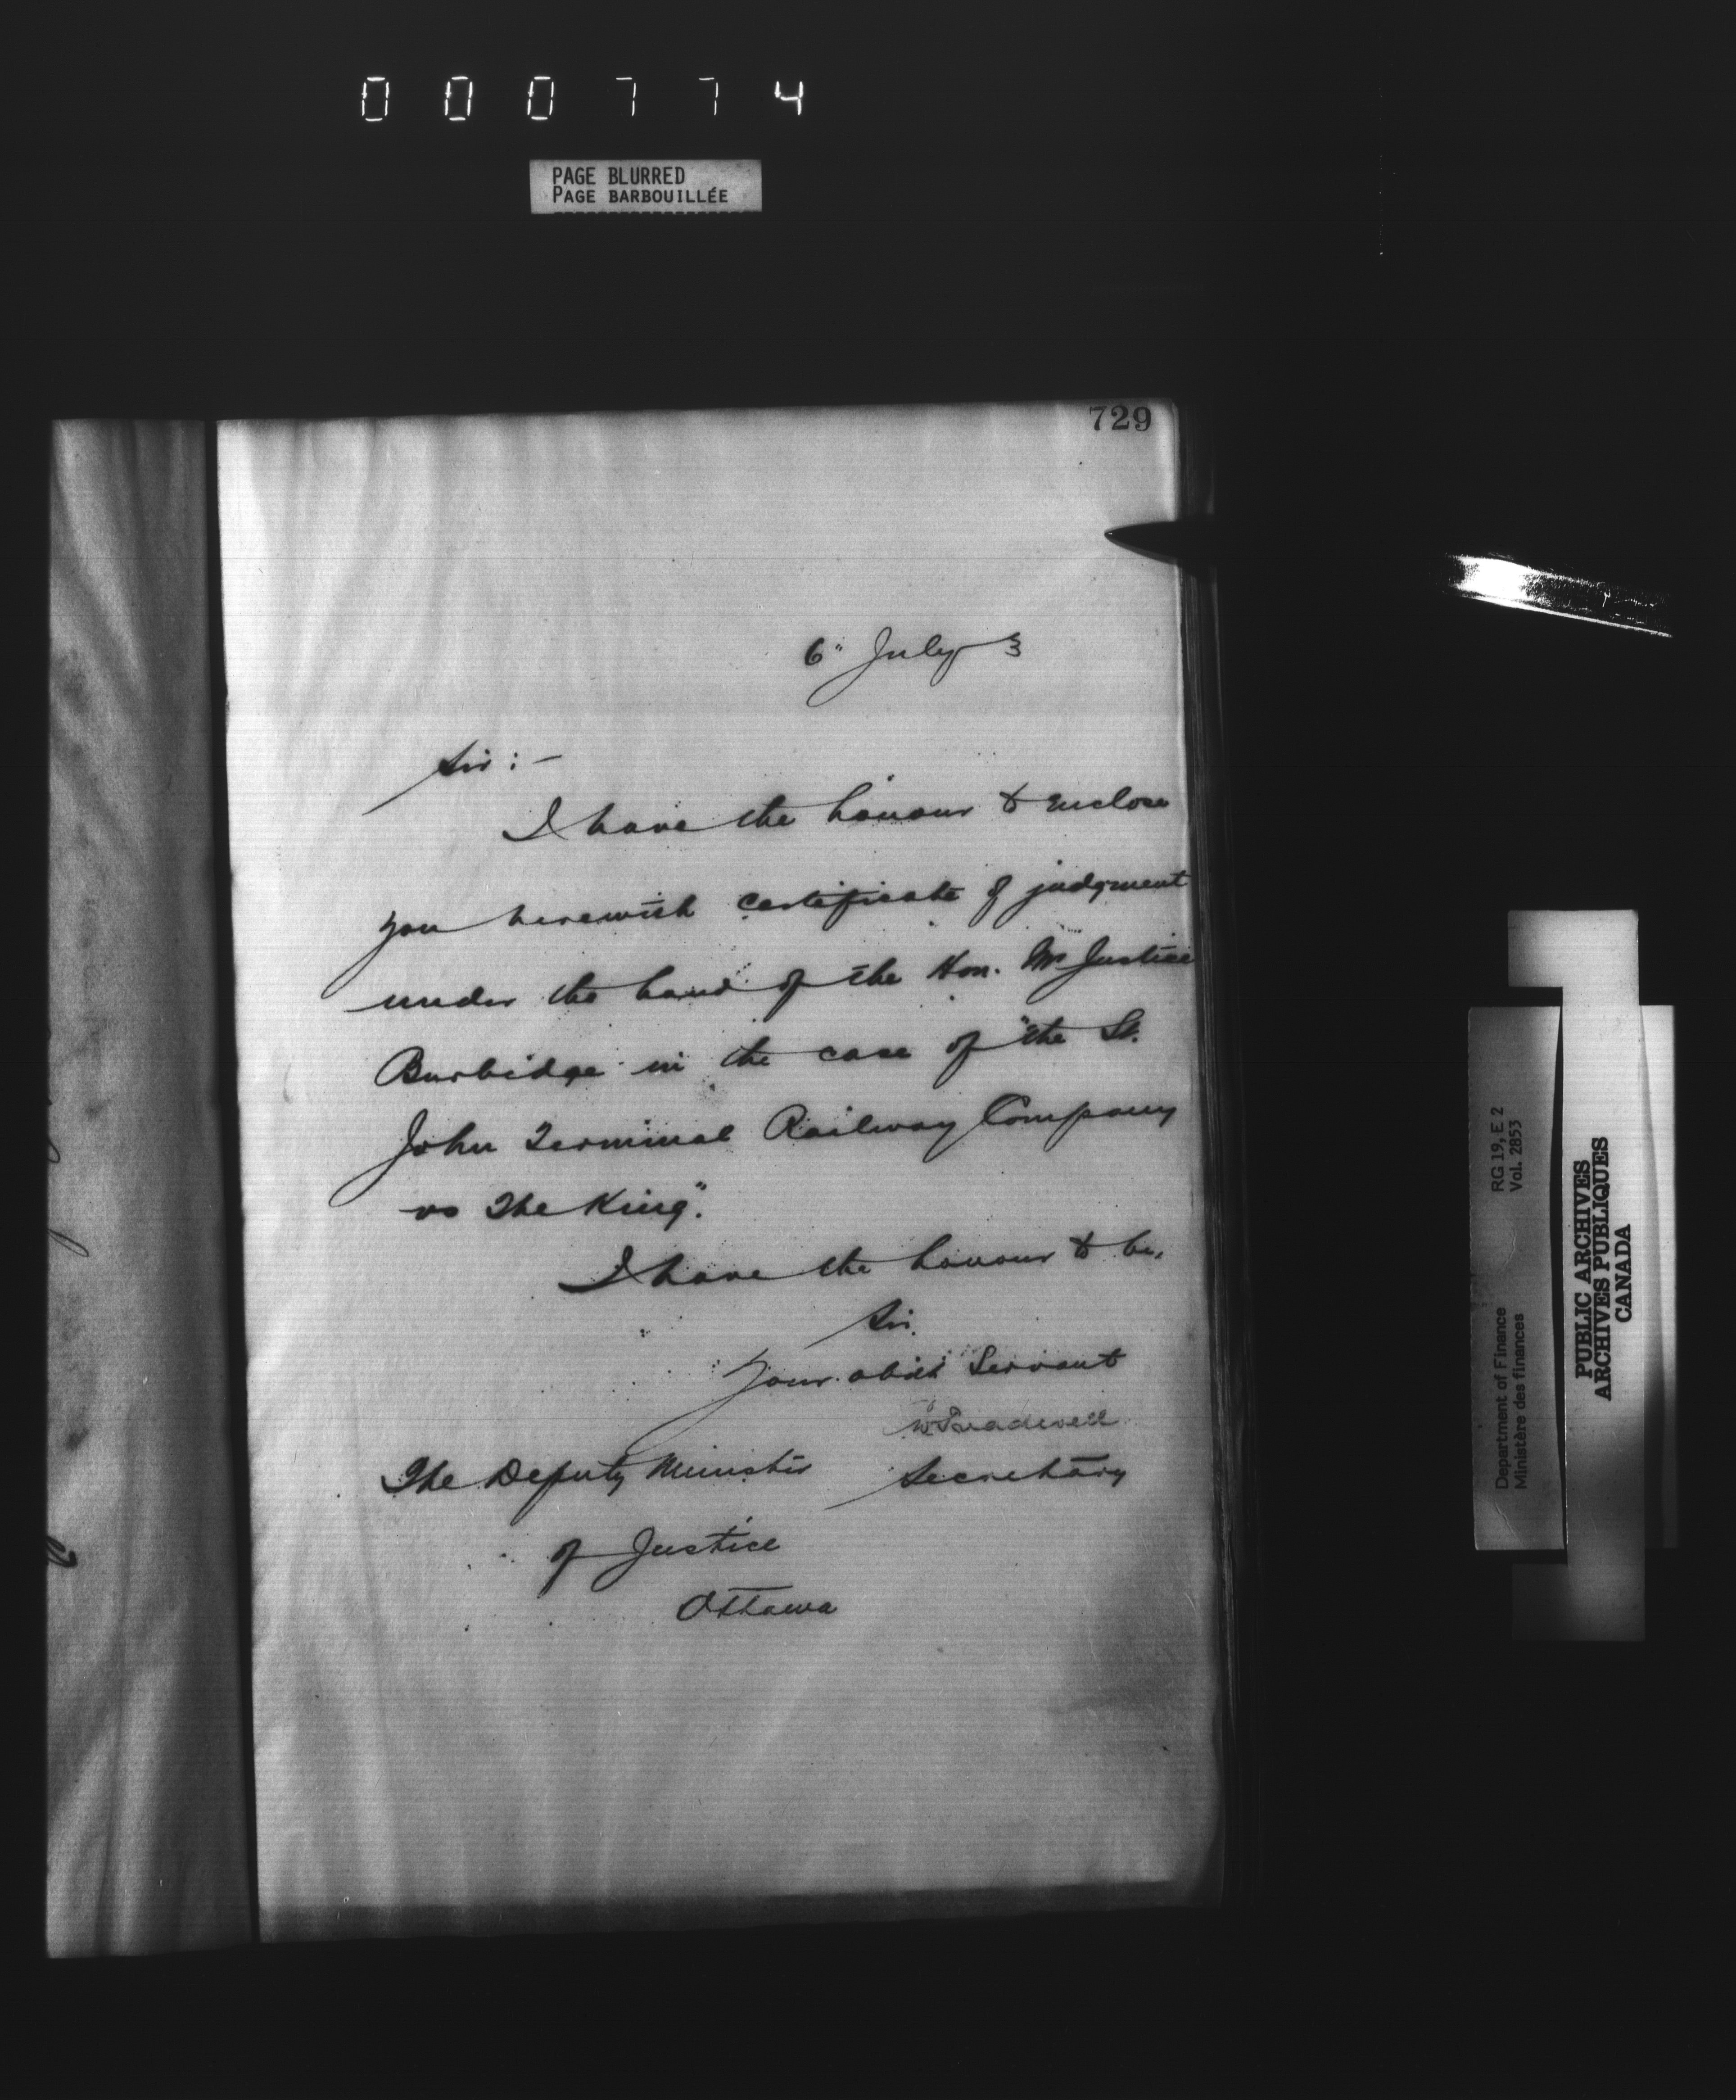 000774
PAGE BLURRED
PAGE BARBOUILLÉE
729
6" July 3
Sir :-
I have the honour to enclose
you herewith certificate of judgment
under the hand of the Hon. Mr Justice
Burbidge in the case of "the St.
John Terminal Railway Company
vs The King".
I have the honour to be,
Sir,
Your obdt Servant
Secretary
The Deputy Minister
of Justice
Ottawa
Department of Finance RG 19, E 2
Ministère des finances Vol. 2853
PUBLIC ARCHIVES
ARCHIVES PUBLIQUES
CANADA